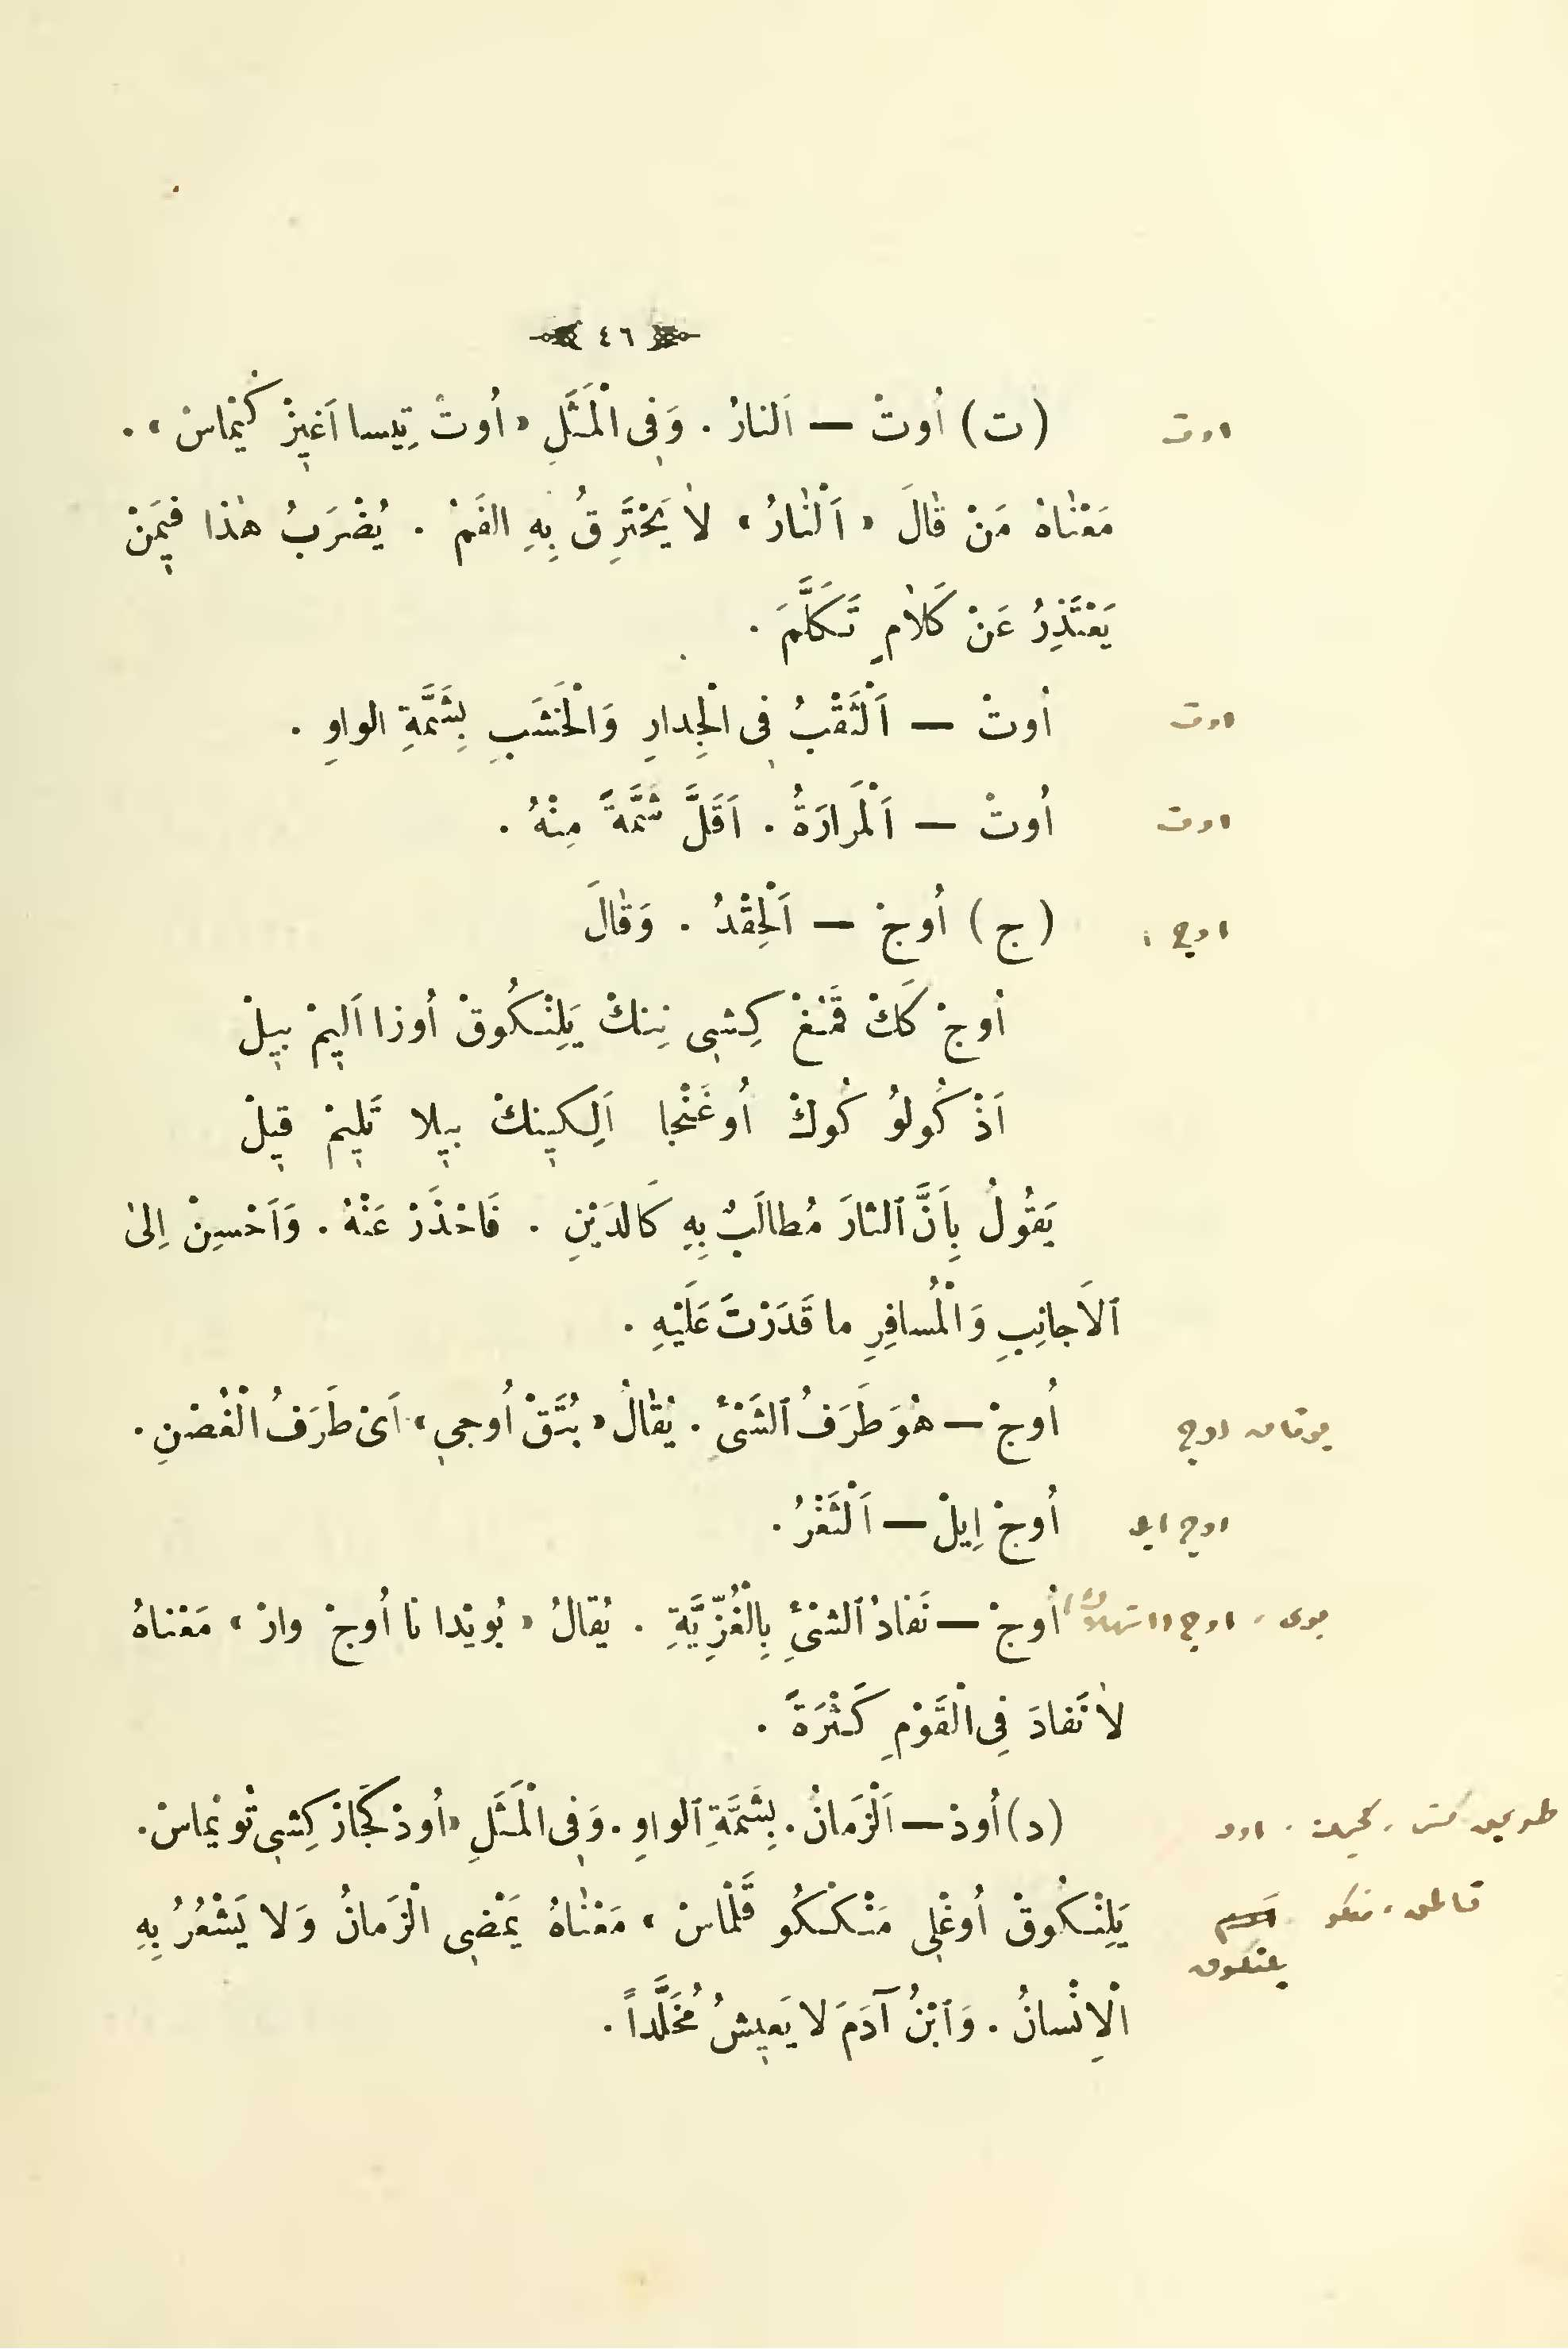 ٤٦
(ت) اُوتْ — اَلنارُ . وَفِى الْمَثَلِ « اُوتْ تِيسا اَغِيزْ كُيْماسْ » .
اوت
مَعْنٰاهْ مَنْ قٰالَ « اَلْنّارُ » لاٰ يَحْتَرِقُ بِهِ الفَمْ . يُضْرَبُ هٰذا فيمَنْ
يَعْتَذِرُ عَنْ كَلاٰمٍ تَكَلَّمَ .
اُوتْ — اَلْثَقْبُ فِى الْجِدارِ وَالْخَشَبِ بِشَمَّةِ الواوِ .
اوت
اُوتْ — اَلْمَرارَةُ . اَقَلَّ شَمَّةً مِنْهُ .
اوت
(ج) اُوجْ — اَلْحِقْدُ . وَقٰالَ
اوج
اُوجْ كَكْ قَمُغْ كِشِى نِنكْ يَلِنْكُوقْ اُوزا اَلِيمْ بِيلْ
اَذْكُولوُ كُوكْ اُوغَنْجا اَلِكِينكْ بِيلا تَلِيمْ قِيلْ
يَقُولُ بِاَنَّ ٱلثارَ مُطالَبٌ بِهِ كَالدَيْنِ . فَاحْذَرْ عَنْهُ . وَاَحْسِنْ اِلىٰ
ٱلاَجانِبِ وَالْمُسافِرِ ما قَدَرْتَ عَلَيْهِ .
اُوجْ — هُوَ طَرَفُ ٱلشَىْءِ . يُقٰالُ « بُتَقْ اُوجى » اَىْ طَرَفُ الْغُصْنِ .
اوج
اُوجْ اِيلْ — اَلْثَغْرُ .
اوج ايل
اُوجْ — نَفادُ ٱلشىْءِ بِالْغُزِّيَّةِ . يُقالُ « بُويْدا نا اُوجْ وارْ » مَعْناهُ
بوى ، اوج
لاٰ نَفادَ فِى الْقَوْمِ كَثْرَةً .
(د) اُوذْ — اَلْزَمانُ . بِشَمَّةِ ٱلواوِ . وَفِى الْمَثَلِ « اُوذْ كَجازْ كِشِى تُويْماسْ .
يَلِنْكُوقْ اُوغْلِى مَنْكْكُو قَلْماسْ » مَعْنٰاهُ يَمْضِى الْزَمانُ وَلا يَشْعُرُ بِهِ
الْاِنْسانُ . وَٱبْنُ آدَمَ لا يَعِيشُ مُخَلَّداً .